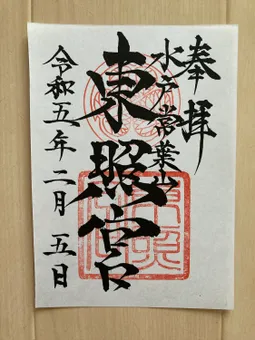 奉拝
水戸常葉山
東照宮
令和五年二月五日